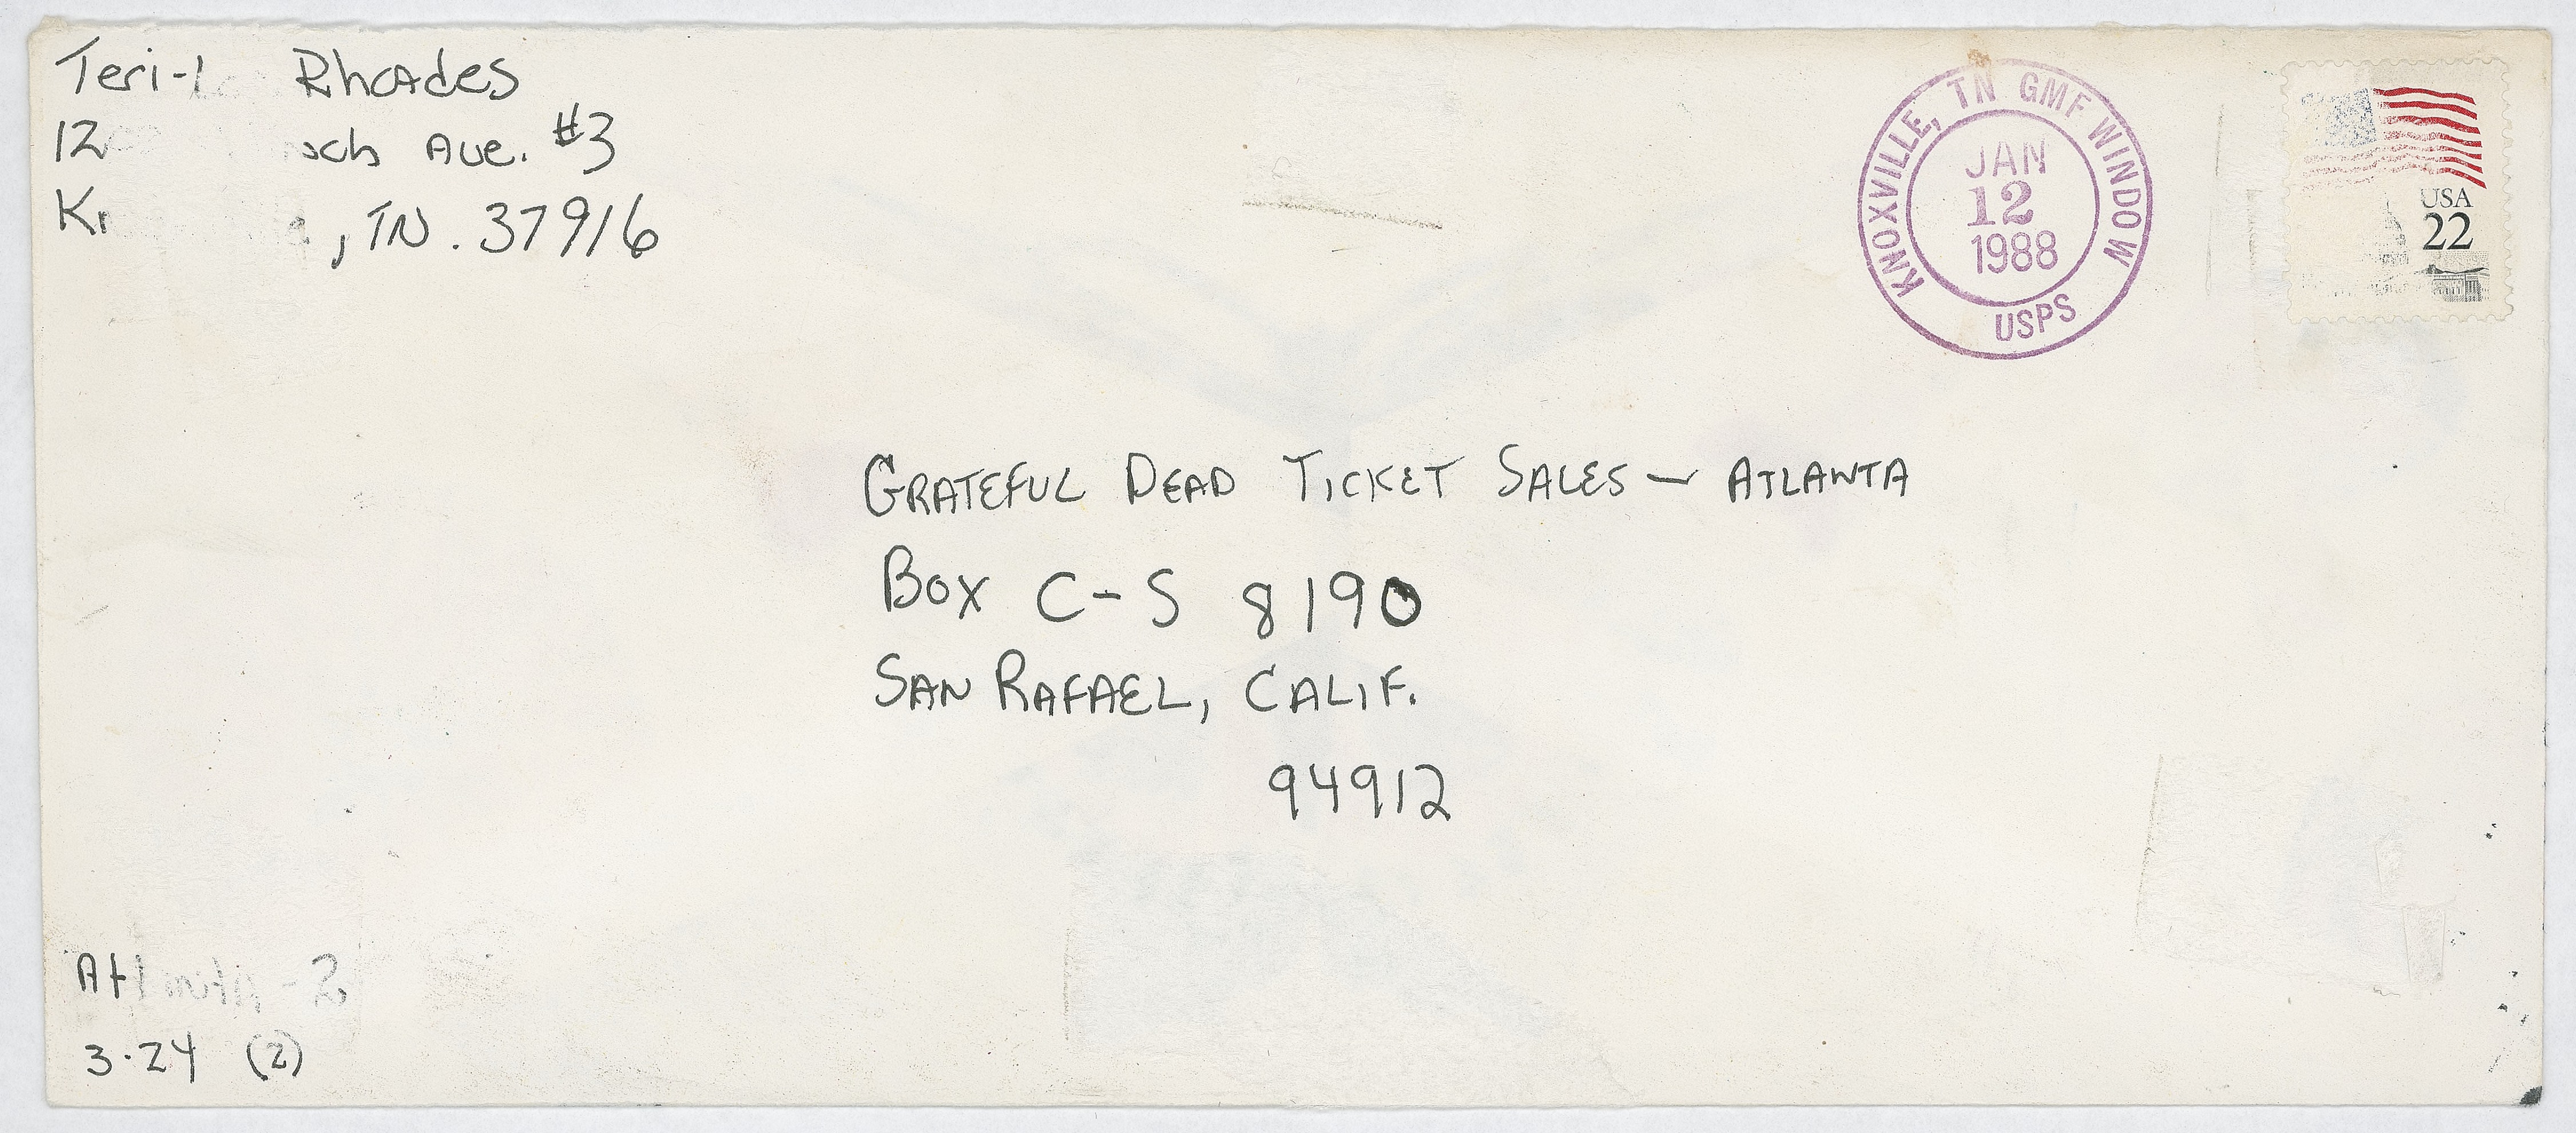 Teri- Rhoades
12 Ave. #3
, TN. 37916
KNOXVILLE, TN GMF WINDOW
JAN
12
1988
USPS
USA
22
GRATEFUL DEAD TICKET SALES - ATLANTA
BOX C-S 8190
SAN RAFAEL, CALIF.
94912
Atlanta - 2
3.24 (2)